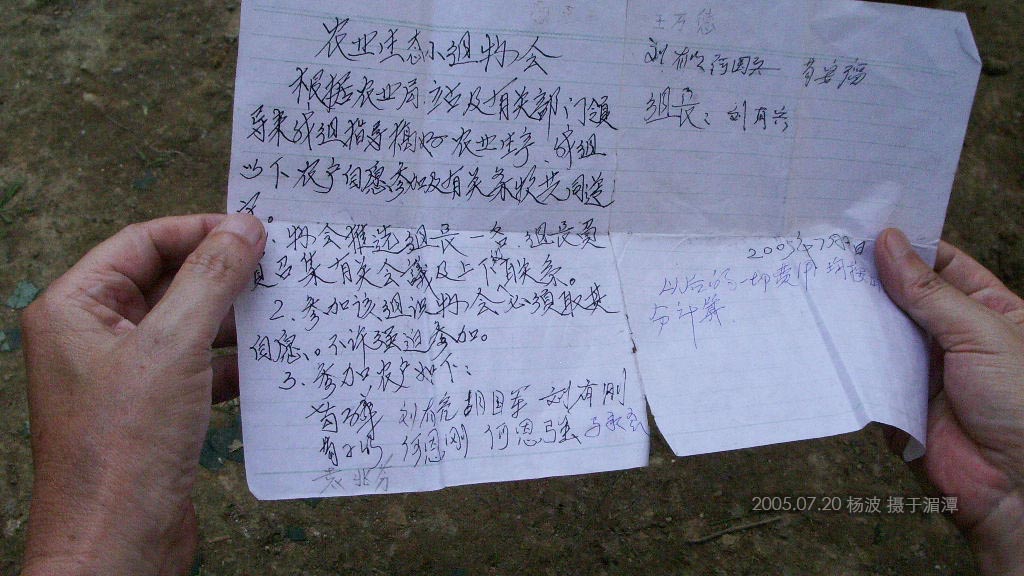 农业生态小组协会
根据农业局、立各及有关部门领
导来我组指导搞好农业生产、我组
以下农户自愿参加及有关条状共同遵
守。
1、协会推选组长一名,组长负
责召集有关会议及上下联系。
2、参加该组设协会必须取其
自愿、。不许强迫参加。
3、参加农户如下:
刘有亮 胡国军 刘有刚
何恩刚 何恩强
王万德
组长:刘有兴
2005年7月 日
以后的一切费用均按
分计算.
2005.07.20 杨波 摄于湄潭